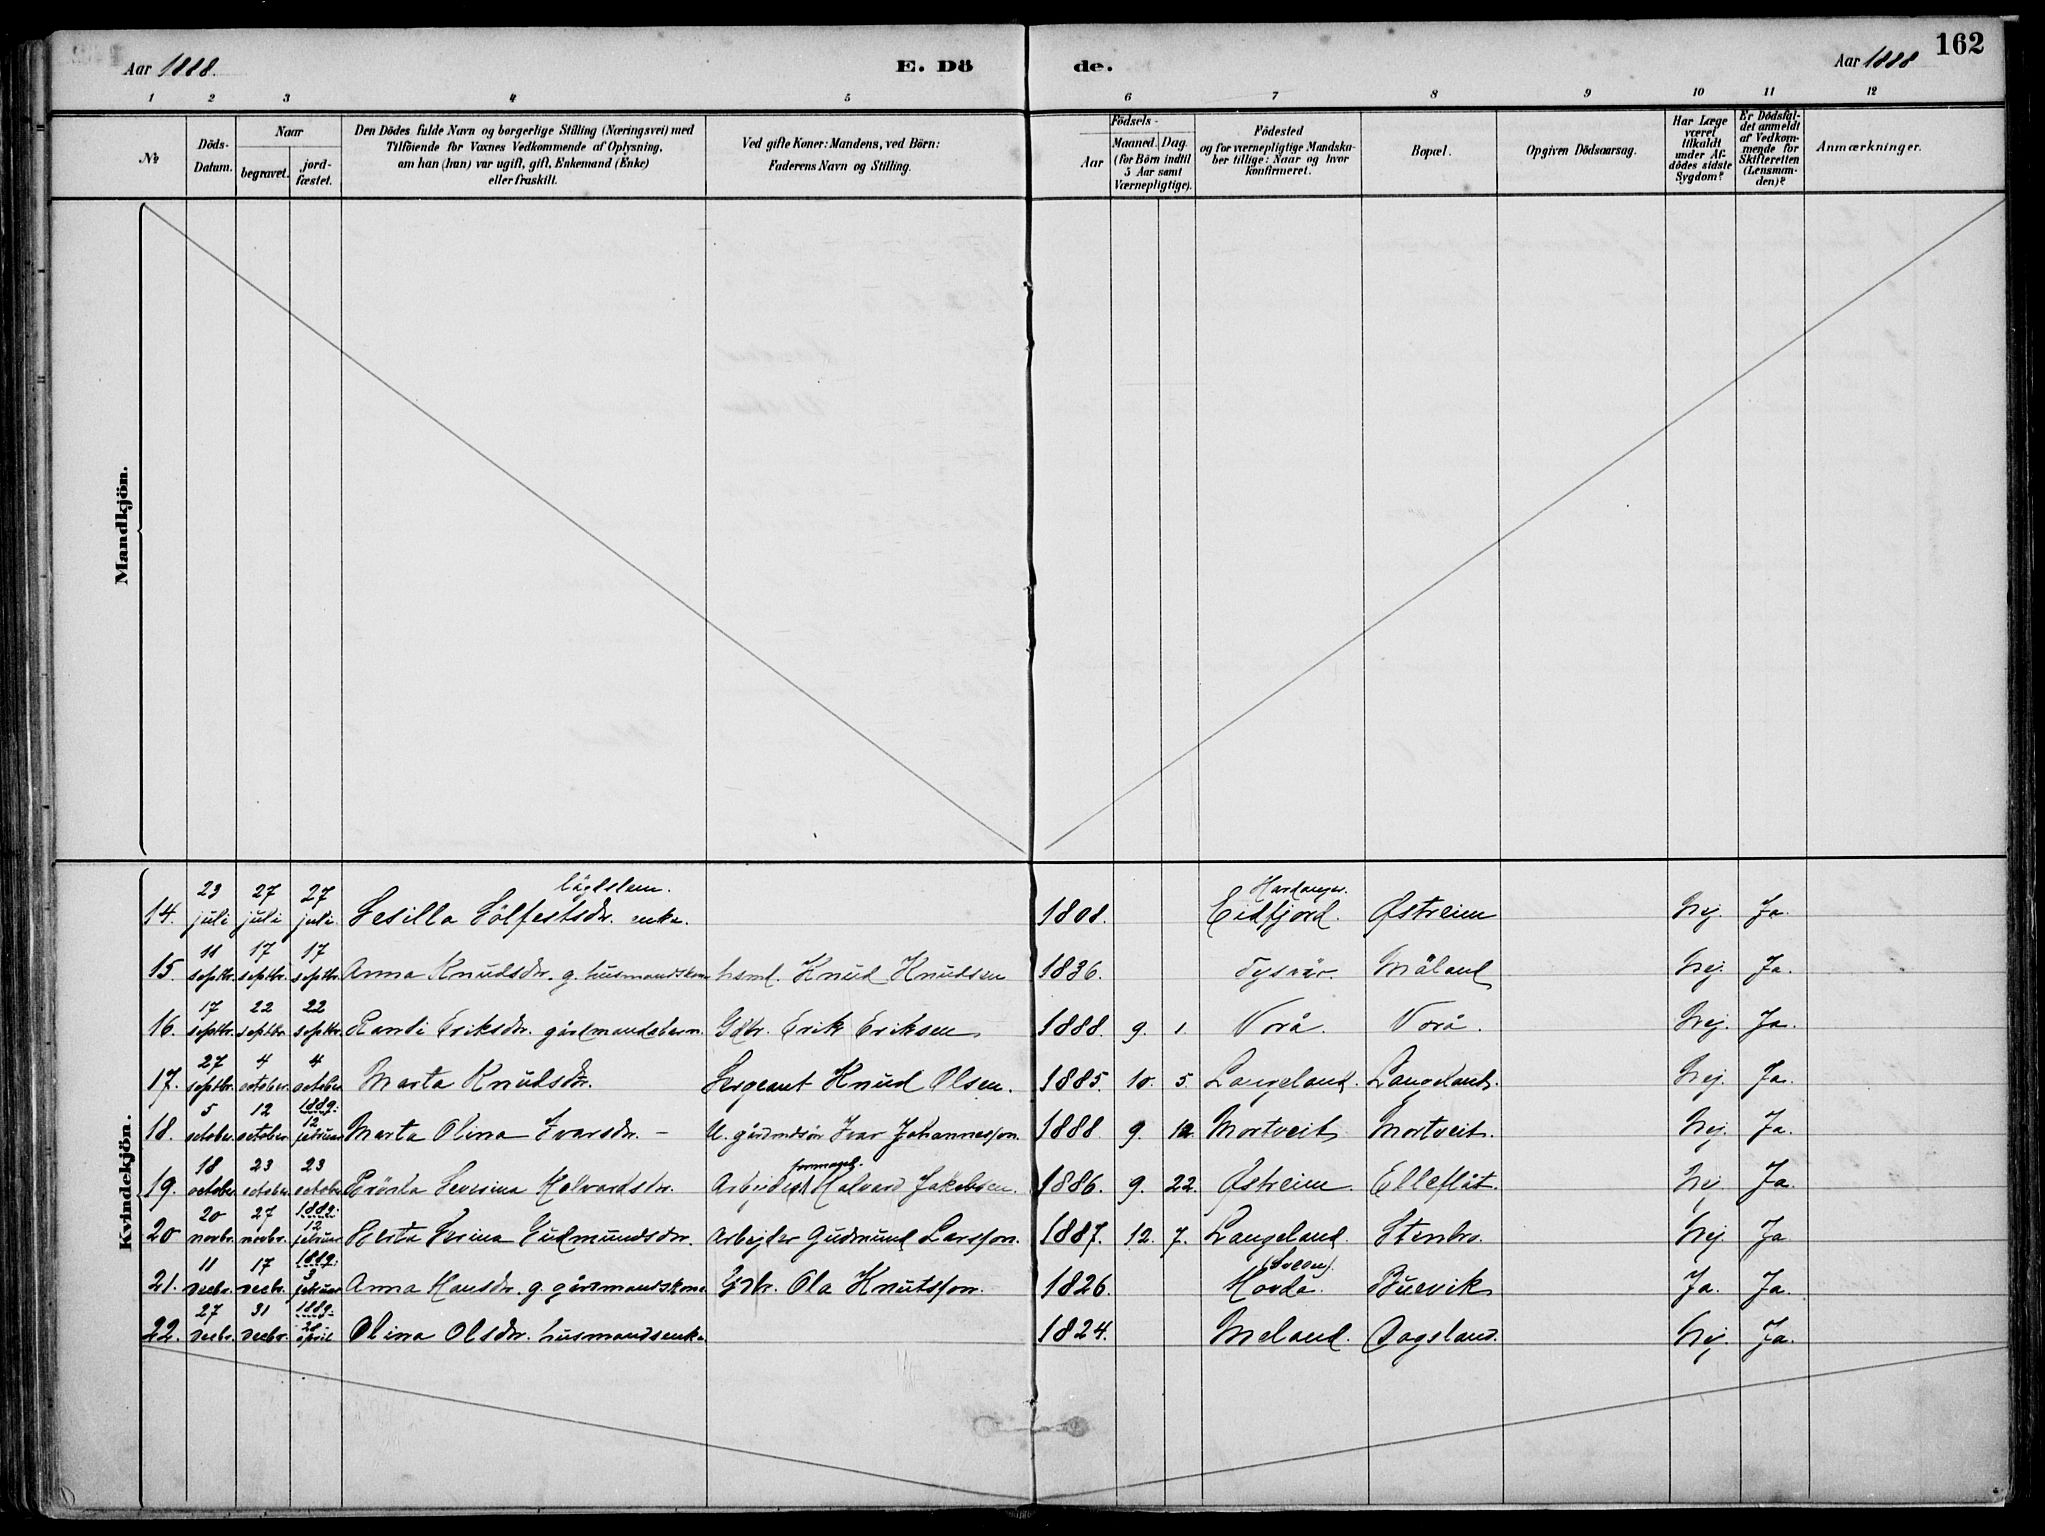 Aar 1888. E. Dö de. Aar 1888 162
1 2 3 4 5 6 7 8 9 10 11 12
№ Döds-Datum. Naar begravet. jord-fæstet. Den Dödes fulde Navn og borgerlige Stilling (Næringsvei) med Tilföiende for Voxnes Vedkommende af Oplysning, om han (hun) var ugift, gift, Enkemand (Enke) eller fraskilt. Ved gifte Koner: Mandens, ved Börn: Faderens Navn og Stilling. Födsels- Aar Maaned. Dag. (for Börn indtil 5 Aar samt Værnepligtige). Födested og for værnepligtige Mandskaber tillige: Naar og hvor konfirmeret. Bopæl. Opgiven Dödsaarsag. Har Læge været tilkaldt under Afdödes sidste Sygdom? Er Dödsfaldet anmeldt af Vedkommende for Skifteretten (Lensmanden)? Anmærkninger.
Mandkjön.
Kvindekjön.
14. 23 juli 27 juli 27 juli Sesilla Sölfestsdr. enke. lägdslem. 1808. Hardanger. Eidfjord. Østreim Nej. Ja.
15. 11 septbr. 17 septbr. 17 septbr. Anna Knudsdr. g. husmandskone husmd. Knud Knudsen 1836. Tysvär. Måland Nej. Ja.
16. 17 septbr. 22 septbr. 22 septbr. Randi Eriksdr. gårdmandsbarn. Gdbr. Erik Eriksen 1888. 9. 1. Vorå. Vorå. Nej. Ja.
17. 27 septbr. 4 october. 4 october Marta Knudsdr. Sergeant Knud Olsen. 1885. 10. 5. Langeland. Langeland. Nej. Ja.
18. 5 october. 12 october. 1889. 12 februar Marta Olina Ivarsdr. – U. gårdmdsön Ivar Johannesson. 1888. 9. 12 Mortveit Mortveit. Nej. Ja.
19. 18 october. 23 october. 23 october Severina Halvardsdr. formand. Halvard Jakobsen. 1886. 9. 22. Østreim. Elleflåt. Nej. Ja.
20 20 novbr. 27 novbr. 1889. 12 februar Berta Serina Gudmundsdr. Arbejder Gudmund Larsson. 1887. 12. 7. Langeland. Stenbro. Nej. Ja
21. 11 decbr. 17 decbr. 1889. 3 februar Anna Hansdr. g. gårdmandskone Gdbr. Ola Knutsson. 1826. Hovda. Buevik Ja. Ja.
22. 27 decbr. 31 decbr. 1889. 20 april Olina Olsdr. husmandsenke 1824. Meland. Dagsland. Nej. Ja.